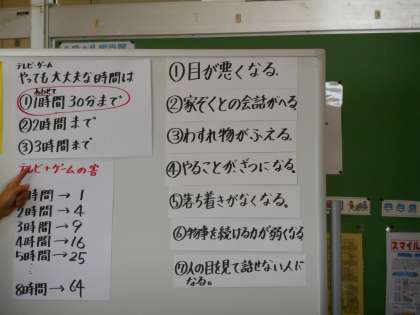 テレビ・ゲーム
やっても大丈夫な時間は
あわせて
①1時間30分まで
②2時間まで
③3時間まで
テレビ+ゲームの害
1時間→1
2時間→4
3時間→9
4時間→16
5時間→25
8時間→64
①目が悪くなる。
②家ぞくとの会話がへる。
③わすれ物がふえる。
④やることが、ざつになる。
⑤落ち着きがなくなる。
⑥物事を続ける力が弱くなる
⑦人の目を見て話せない人に
なる。
スマイル